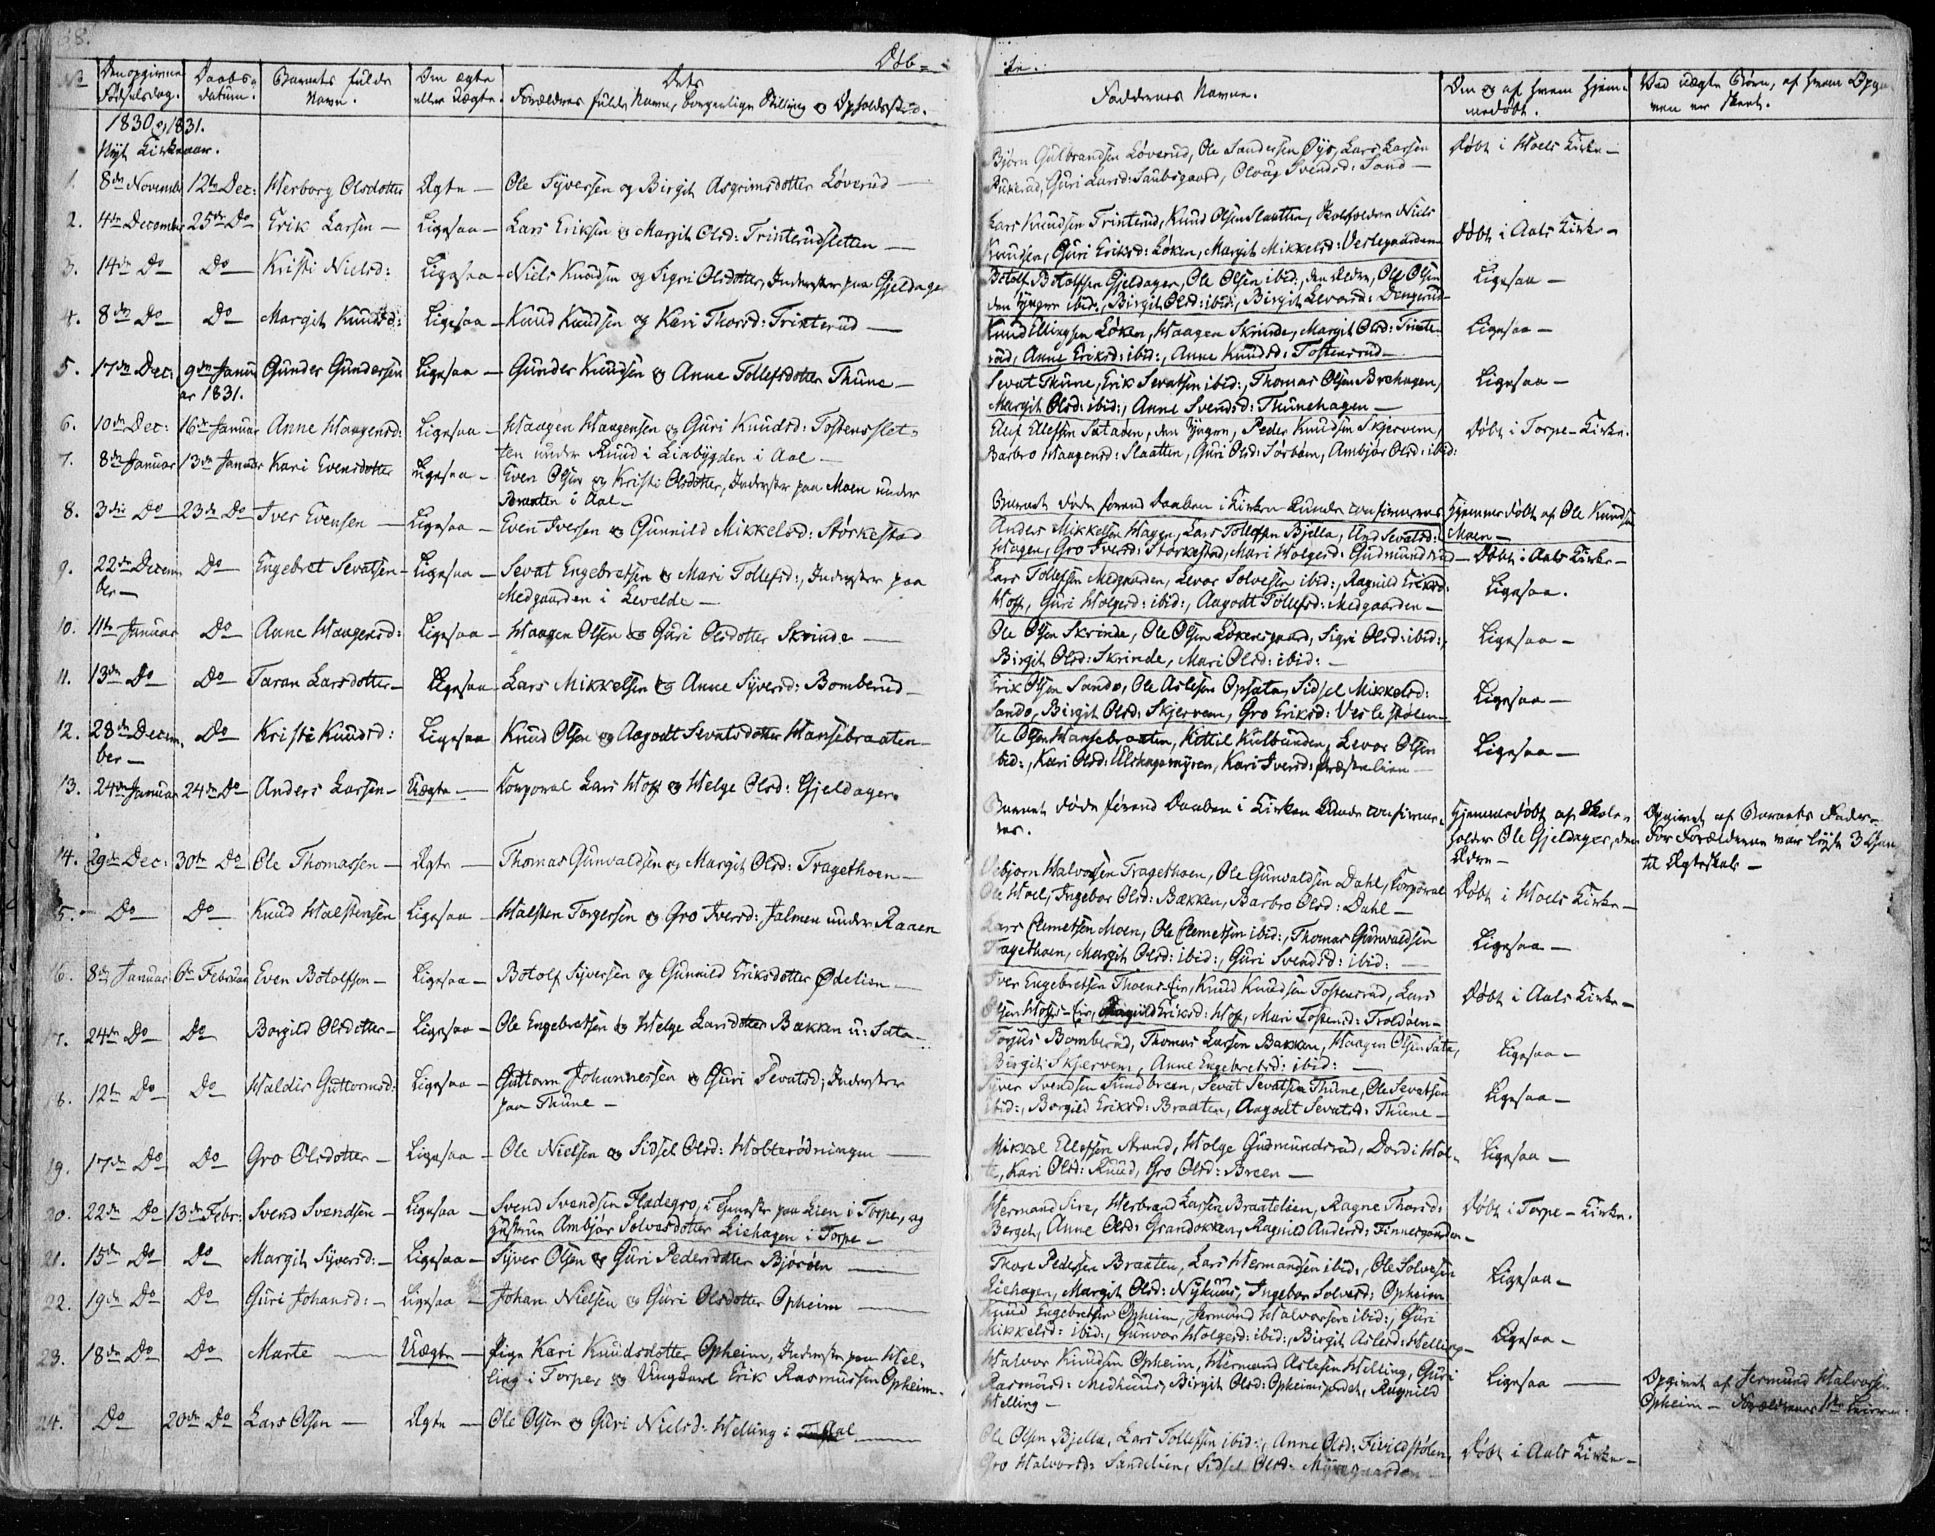 38.
Døb-
te.
No
Den opgivne Fødselsdag.
Daabs-datum.
Barnets fulde Navn.
Om ægte eller uægte.
Dets Forældres fulde Navn, borgerlige Stilling og Opholdssted.
Faddernes Navne.
Om og af hvem hjemmedøbt.
Ved uægte Børn, af hvem Opgaven er skeet.
1830 og 1831.
Nyt Kirkeaar.
1. 8de Novembr 12te Dec: Herborg Olsdotter Ægte — Ole Syversen og Birgit Asgrimsdotter Løverud —
Bjørn Gulbrandsen Løverud, Ole Sandersen Øys, Lars Larsen
Ruserud, Guri Larsd: Saubsgaard, Olaug Svendsd: Sand —
Døbt i Hoels Kirke —
2. 4de December 25de Do Erik Larsen — Ligesaa — Lars Eriksen og Margit Olsd: Trinterudsletten —
Lars Knudsen Trinterud, Knud Olsen Slaatten, Skolholderen Niels
Knudsen, Guri Eriksd: Løken, Margit Mikkelsd: Veslegaarden
Døbt i Aals Kirke —
3. 14de Do Do Kristi Nielsd: Ligesaa — Niels Knudsen og Sigri Olsdotter, Inderster paa Gjeldager
Botolf Botolfsen Gjeldager, Ole Olsen ibid:, den Ældre, Ole Olsen
den Yngre ibid:, Birgit Olsd: ibid:, Birgit Levorsd: Dengerud
Ligesaa —
4. 8de Do Do Margit Knudsd: Ligesaa — Knud Knudsen og Kari Thorsd: Trinterud —
Knud Ellingsen Løken, Haagen Skrinde, Margit Olsd: Trinte-
rud, Anne Eriksd: ibid:, Anne Knudsd: Tostensrud —
Ligesaa —
5. 17de Dec: 9de Janu- Gunder Gundersen Ligesaa — Gunder Knudsen og Anne Tollefsdotter Thune —
ar 1831.
Sevat Thune, Erik Sevatsen ibid:, Thomas Olsen Brehagen,
Margit Olsd: ibid:, Anne Svendsd: Thunehagen —
Ligesaa —
6. 10de Dec: 16de Januar Anne Haagensd: Ligesaa — Haagen Haagensen og Guri Knudsd: Tostensslet-
ten under Ruud i Liabygden i Aal —
Ellef Ellefsen Sataøen, den Yngre, Peder Knudsen Skjervem,
Barbro Haagensd: Slaatten, Guri Olsd: Sørbøen, Ambjør Olsd: ibid:
Døbt i Torpe-Kirke.
7. 8de Januar 13de Januar Kari Evensdotter Ligesaa — Even Olsen og Kristi Olsdotter, Inderster paa Moen under
Braaten i Aal —
Barnet døde førend Daaben i Kirken kunde confirmeres
Hjemmedøbt af Ole Knudsen
Moen —
8. 3die Do 23de Do Iver Evensen — Ligesaa — Even Iversen og Gunnild Mikkelsd: Størkestad
Anders Mikkelsen Hagen, Lars Tollefsen Bjella, Und Sevatsd:
Hagen, Gro Iversd: Størkestad, Mari Holgersd: Gudmundsrud —
Døbt i Aals Kirke —
9. 22de Decem- Do Engebret Sevatsen — Ligesaa — Sevat Engebretsen og Mari Tollefsd:, Inderster paa
ber — Medgaarden i Levelde —
Lars Tollefsen Medgaarden, Levor Solvesen ibid:, Ragnild Eriksd:
Hoff, Guri Holgersd: ibid:, Aagodt Tollefsd: Medgaarden —
Ligesaa.
10. 11te Januar Do Anne Haagensd: Ligesaa — Haagen Olsen og Guri Olsdotter Skrinde —
Ole Olsen Skrinde, Ole Olsen Løkensgaard, Sigri Olsd: ibid:,
Birgit Olsd: Skrinde, Mari Olsd: ibid: —
Ligesaa —
11. 13de Do Do Taran Larsdotter — Ligesaa — Lars Mikkelsen og Anne Syversd: Bomberud —
Erik Olsen Sando, Ole Aslesen Opsata, Sidsel Mikkelsd:
Sando, Birgit Olsd: Skjervem, Gro Eriksd: Veslestølen —
Ligesaa —
12. 28de Decem- Do Kristi Knudsd: Ligesaa Knud Olsen og Aagodt Sevatsdotter Hansebraaten —
ber —
Ole Olsen Hansebraaten, Kittil Kulbunden, Levor Olsen
ibid:, Kari Olsd: Elshagemyren, Kari Iversd: Præstelien —
Ligesaa —
13. 24de Januar 24de Do Anders Larsen — Uægte — Korporal Lars Hoff og Helge Olsd: Gjeldager.
Barnet døde førend Daaben i Kirken kunde confirme-
res.
Hjemmedøbt af Skole-
holder Ole Gjeldager, den
Ældre —
Opgivet af Barnets Fader —
For Forældrene var lyst 3 Gan
til Ægteskab —
14. 29de Dec: 30te Do Ole Thomassen — Ægte — Thomas Gunvaldsen og Margit Olsd: Tragethoen —
Vebjørn Halvorsen Tragethoen, Ole Gunvaldsen Dahl, Korporal
Ole Hoel, Ingebor Olsd: Bækken, Barbro Olsd: Dahl —
Døbt i Hoels Kirke —
15. Do Do Knud Halstensen Ligesaa — Halsten Torgersen og Gro Iversd: Jalmen under Raaen
Lars Clemetsen Moen, Ole Clemetsen ibid:, Thomas Gunvaldsen
Tragethoen, Margit Olsd: ibid:, Guri Svendsd: ibid: —
Ligesaa —
16. 8de Januar 6te Februar Even Botolfsen — Ligesaa — Botolf Syversen og Gunnild Eriksdotter Ødelien —
Iver Engebretsen Thoens-Eie, Knud Knudsen Tostensrud, Lars
Olsen Hoffs-Eie, Ragnild Eriksd: Hoff, Mari Tostensd: Troldøen —
Døbt i Aals Kirke —
17. 24de Do Do Borgild Olsdotter — Ligesaa — Ole Engebretsen og Helge Larsdotter Bakken u: Sata —
Torkis Bomberud, Thomas Larsen Bakken, Haagen Olsen Sata,
Birgit Skjervem, Anne Engebretsd: ibid: —
Ligesaa —
18. 12te Do Do Haldis Guttormsd: Ligesaa — Guttorm Johannessen og Guri Sevatsd:, Inderster
paa Thune —
Syver Svendsen Sundbreen, Sevat Sevatsen Thune, Ole Sevatsen
ibid:, Borgild Eriksd: Braaten, Aagodt Sevatsd: Thune —
Ligesaa —
19. 17de Do Do Gro Olsdotter — Ligesaa — Ole Nielsen og Sidsel Olsd: Holterødningen —
Mikkel Ellefsen Strand, Holge Gudmundsrud, Dordi Hol-
te, Kari Olsd: Ruud, Gro Olsd: Breen —
Ligesaa —
20. 22de Do 13de Febr: Svend Svendsen — Ligesaa — Svend Svendsen Fladegro, i Tjeneste paa Lien i Torpe, og
Hustrue Ambjør Solvesdotter Liehagen i Torpe —
Hermand Sire, Herbrand Larsen Braatelien, Ragne Thorsd:
Berget, Anne Olsd: Grandokken, Ragnild Andersd: Finnesgaarden —
Døbt i Torpe-Kirke.
21. 15de Do Do Margit Syversd: — Ligesaa — Syver Olsen og Guri Pedersdotter Bjørøen —
Thore Pedersen Braaten, Lars Hermandsen ibid:, Ole Solvesen
Liehagen, Margit Olsd: Nyhuus, Ingebor Solvesd: Opheim
Ligesaa —
22. 19de Do Do Guri Johansd: — Ligesaa — Johan Nielsen og Guri Olsdotter Opheim —
Knud Engebretsen Opheim, Jermund Halvorsen ibid:, Guri
Mikkelsd: ibid:, Gunvor Holgersd: ibid:, Birgit Aslesd: Helling —
Ligesaa —
23. 18de Do Do Marte — Uægte — Pige Kari Knudsdotter Opheim, Inderste paa Hel-
ling i Torpe, og Ungkarl Erik Rasmussen Opheim.
Halvor Knudsen Opheim, Hermand Aslesen Helling, Guri
Rasmusd: Medhuus, Birgit Olsd: Opheimsjordet, Ragnild
Helling —
Ligesaa —
Opgivet af Jermund Halvorsen
Opheim — Forældrenes 1ste Leierm:
24. Do 20de Do Lars Olsen — Ægte — Ole Olsen og Guri Nielsd: Helling i Aal —
Ole Olsen Bjella, Lars Tollefsen ibid:, Anne Olsd: Tivildstølen,
Gro Halvorsd: Sandelien, Sidsel Olsd: Myregaarden —
Døbt i Aals Kirke —